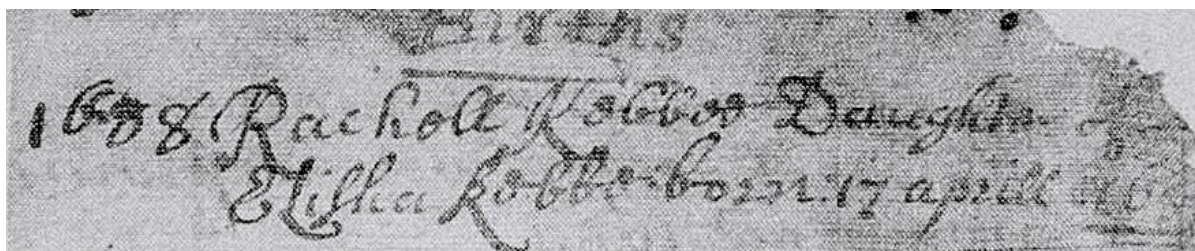 Births
1688 Rachell Kebbe Daughter of
Elisha Kebbe born 17 aprill